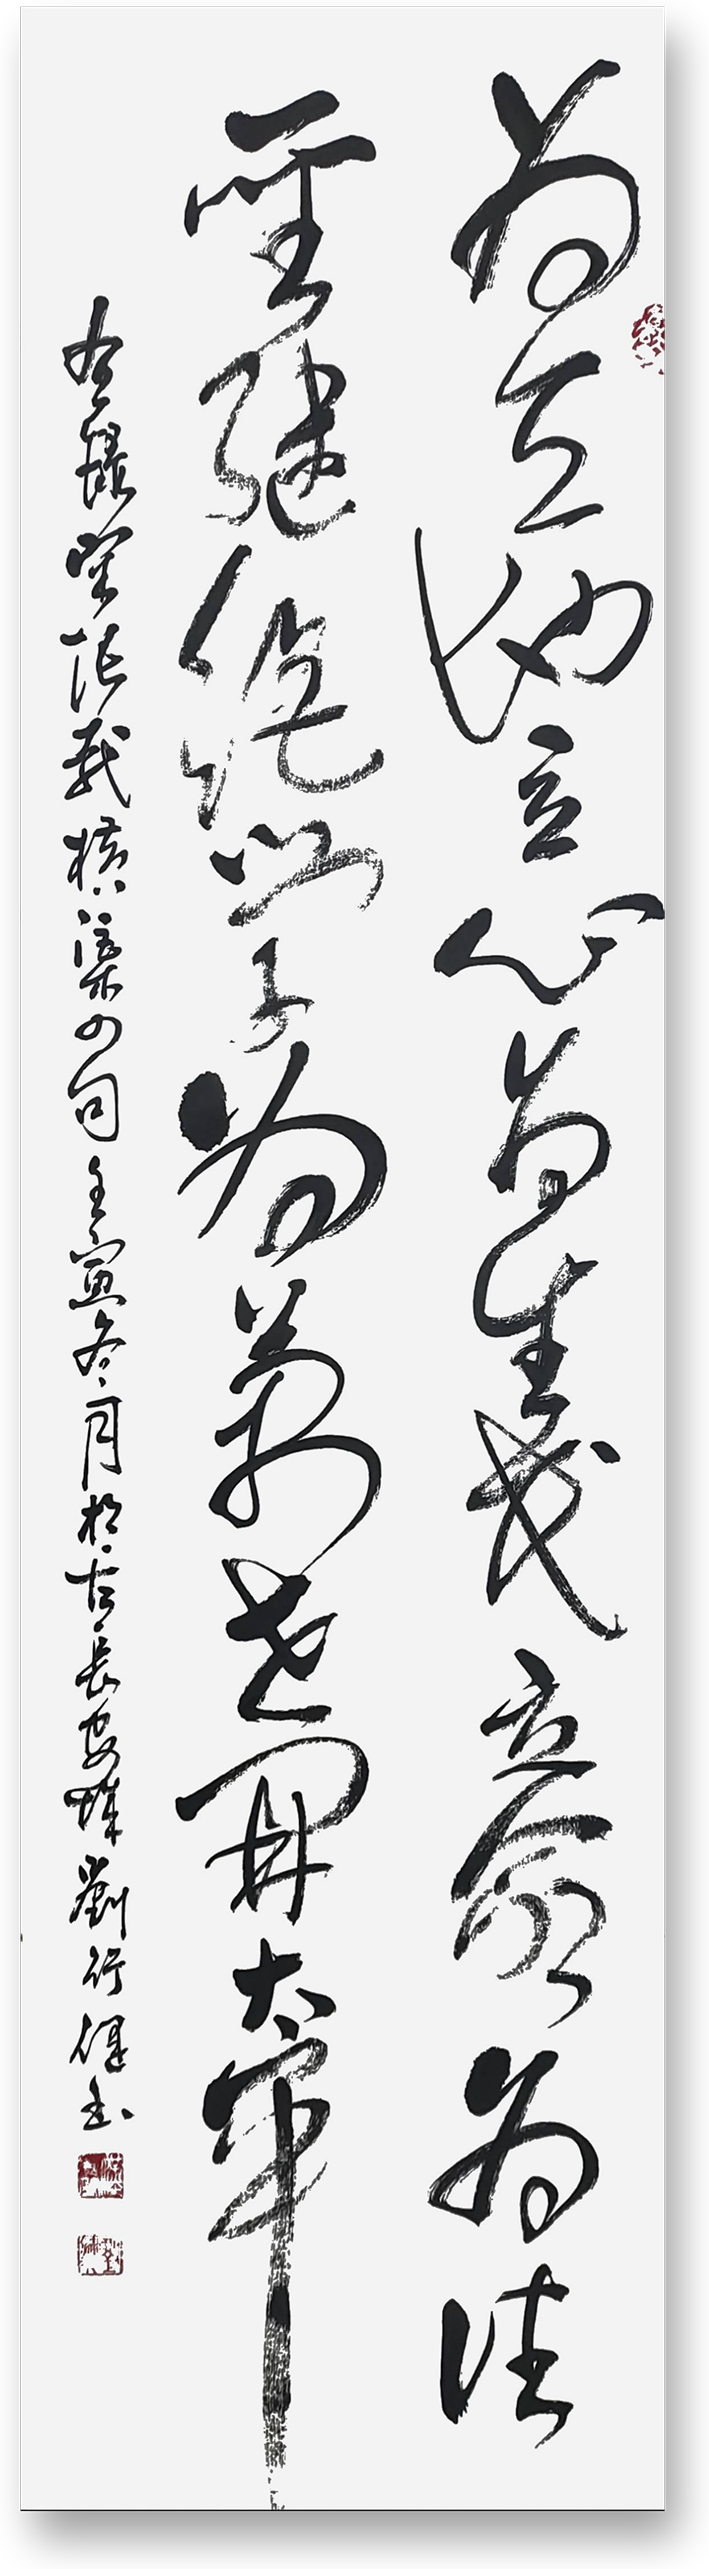 為天地立心為生民立命為往
聖繼絕學為萬世開太平
右錄宋張載橫渠四句壬寅冬月於古長安城劉行健书